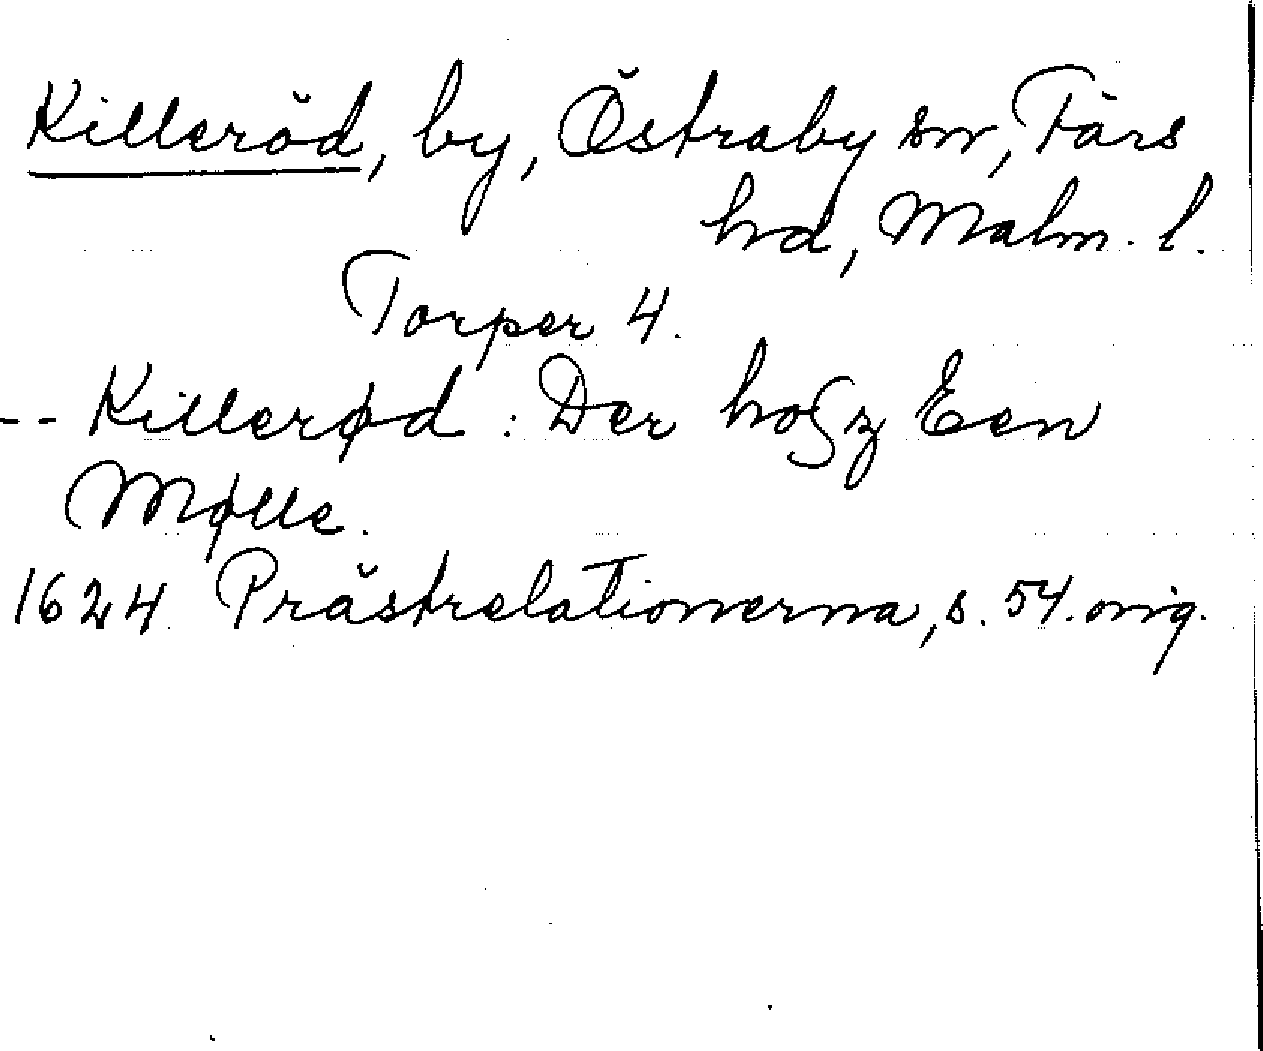 Killeröd, by, Östraby sn, Färs
hd, Malm. l.
Torper 4.
-- Killerød : Der hoßz Een
Mølle.
1624 Prästrelationerna, s. 54. orig.